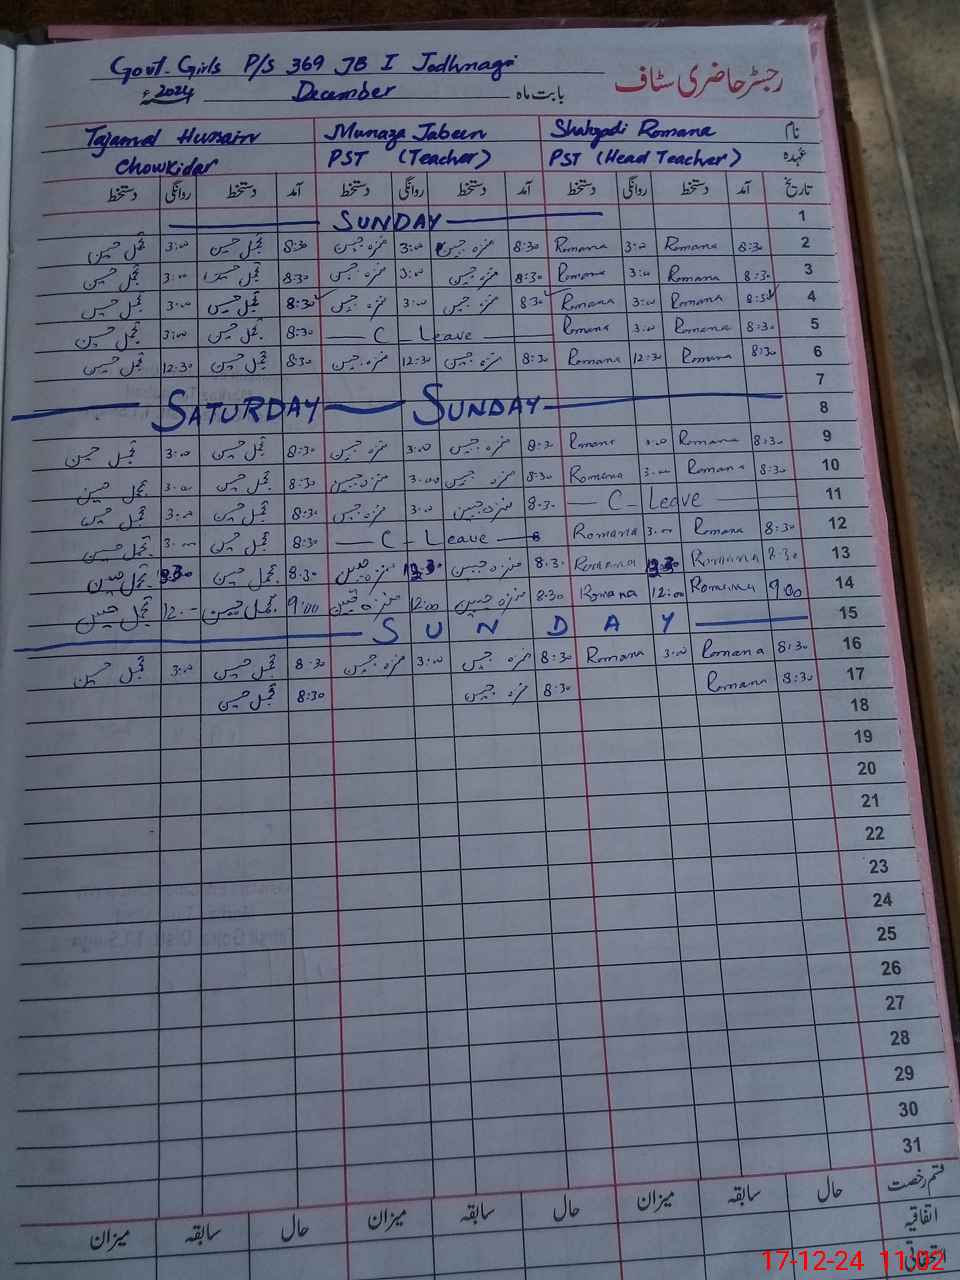 Govt. Girls P/S 369 JB I Jodhnagri
رجسٹر حاضری سٹاف
بابت ماہ December 2024ء
نام Shahzadi Romana Munaza Jabeen Tajamal Hussain
عہدہ PST (Head Teacher) PST (Teacher) Chowkidar
تاریخ آمد دستخط روانگی دستخط آمد دستخط روانگی دستخط آمد دستخط روانگی دستخط
1 SUNDAY
2 8:30 Romana 3:00 Romana 8:30 منزہ جبیں 3:00 منزہ جبیں 8:30 تجمل حسین 3:00 تجمل حسین
3 8:30 Romana 3:00 Romana 8:30 منزہ جبیں 3:00 منزہ جبیں 8:30 تجمل حسین 3:00 تجمل حسین
4 8:30 Romana 3:00 Romana 8:30 منزہ جبیں 3:00 منزہ جبیں 8:30 تجمل حسین 3:00 تجمل حسین
5 8:30 Romana 3:00 Romana C_Leave 8:30 تجمل حسین 3:00 تجمل حسین
6 8:30 Romana 12:30 Romana 8:30 منزہ جبیں 12:30 منزہ جبیں 8:30 تجمل حسین 12:30 تجمل حسین
7
8 SATURDAY SUNDAY
9 8:30 Romana 3:00 Romana 8:30 منزہ جبیں 3:00 منزہ جبیں 8:30 تجمل حسین 3:00 تجمل حسین
10 8:30 Romana 3:00 Romana 8:30 منزہ جبیں 3:00 منزہ جبیں 8:30 تجمل حسین 3:00 تجمل حسین
11 C_Leave 8:30 منزہ جبیں 3:00 منزہ جبیں 8:30 تجمل حسین 3:00 تجمل حسین
12 8:30 Romana 3:00 Romana C_Leave 8:30 تجمل حسین 3:00 تجمل حسین
13 8:30 Romana Romana 8:30 منزہ جبیں منزہ جبیں 8:30 تجمل حسین تجمل حسین
14 9:00 Romana 12:00 Romana 8:30 منزہ جبیں 12:00 منزہ جبیں 9:00 تجمل حسین 12:00 تجمل حسین
15 SUNDAY
16 8:30 Romana 3:00 Romana 8:30 منزہ جبیں 3:00 منزہ جبیں 8:30 تجمل حسین 3:00 تجمل حسین
17 8:30 Romana 8:30 منزہ جبیں 8:30 تجمل حسین
18
19
20
21
22
23
24
25
26
27
28
29
30
31
قسم رخصت حال سابقہ میزان حال سابقہ میزان حال سابقہ میزان
اتفاقیہ
استحقاقی
17-12-24 11:02